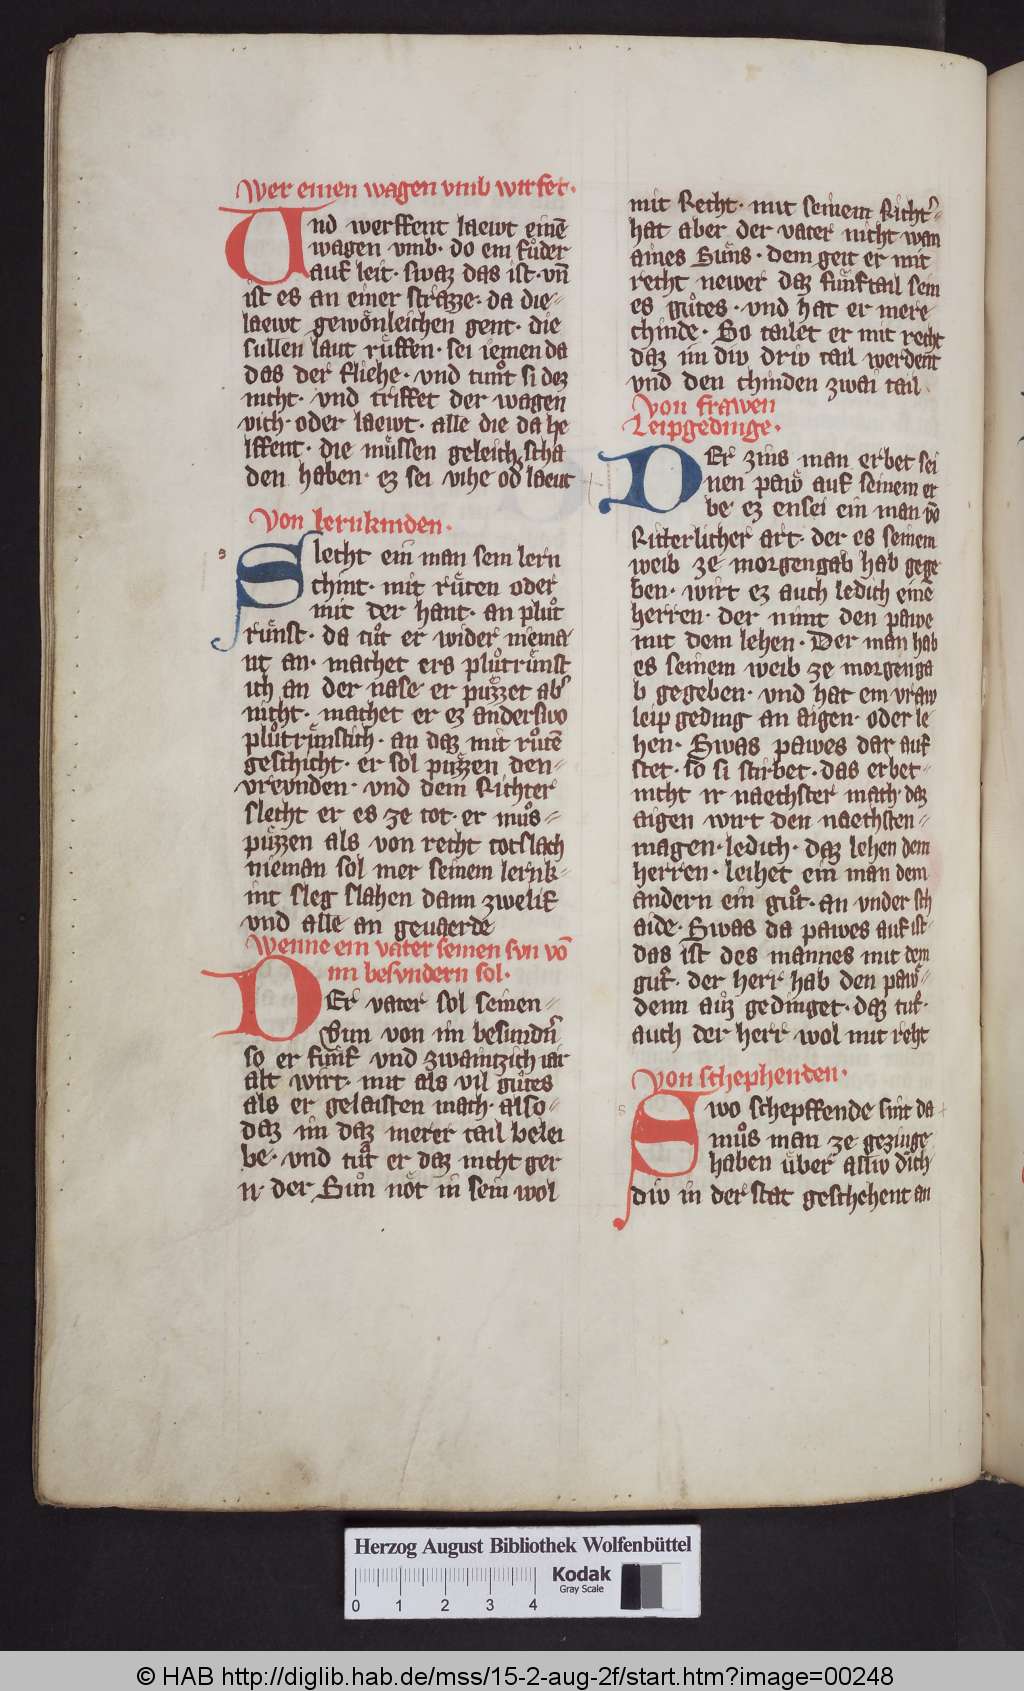 Wer einen wagen vmb wirfet·
Vnd werffent laewt einē
wagen vmb· do ein fuͦder
auf leit· swaz das ist· vn̄
ist es an einer strazze· da die=
laewt gewoͤnleichen gent· die
sullen laut ruͤffen· sei iemen da
das der fliehe· vnd tunt si dez
nicht· vnd triffet der wagen
vich· oder laewt· alle die da he
lffent· die muͤssen geleich scha
den haben· ez sei vihe od̓ laeut
Von lernkinden·
s
Slecht ein man sein lern
chint· mit ruͤten oder
mit der hant· an pluͦt
runst· da tuͦt er wider niema
nt an· machet ers pluͦtruͤnst
ich an der nase er puͤzzet ab̓
nicht· machet er ez anderswo
pluͦtruͤnstich· an daz mit ruͦtē
geschicht· er sol puͤzzen den=
vrevnden· vnd dem Richter
slecht er es ze tot· er muͦs=
puͤzzen als von recht totslach
nieman sol mer seinem lernk=
int sleg slahen dann zwelif
vnd alle an geuaerde
Wenne ein vater seinen svn vō
im besvndern sol·
DEr vater sol seinen=
Sun von im besundn̓
so er fumf vnd zwaintzich iar
alt wirt· mit als vil guͤtes
als er gelaisten mach· also=
daz im daz merer tail belei
be· vnd tuͦt er daz nicht ger
n· der Suͦn noͤt in sein wol
mit Recht· mit seinem Richt̓=
hat aber der vater nicht wan
aines Suͦns· dem geit er mit
recht newer daz fuͤnftail sein
es guͦtes· vnd hat er mere
chinde· So tailet er mit recht
daz im div driv tail werdent
vnd den chinden zwai tail
Von frawen
Leipgedinge·
DEr zins man erbet sei
nen paw auf seinem er
be ez ensei ein man vō
Ritterlicher art· der es seinem
weib ze morgengab hab gege
ben· wirt ez auch ledich einē
herren· der nimt den pawe
mit dem lehen· Der man hab
es seinem weib ze morgenga
b gegeben· vnd hat ein vraw
leip geding an aigen· oder le
hen· Swas pawes dar auf
stet· so si stirbet· das erbet=
nicht ir naechster mach· daz
aigen wirt den naechsten=
magen· ledich· daz lehen dem
herren· leihet ein man dem
andern ein guͦt· an vnder sch
aide· Swas da pawes auf ist
das ist des mannes mit dem
gut· der herr hab den paw=
denn auz gedinget· daz tut·
auch der herr wol mit reht
Von schephenden·
s
Swo schepffende sint da
muͦs man ze gezinge
haben uͤber alliv dich
div in der stat geschehent an
Herzog August Bibliothek Wolfenbüttel
0 1 2 3 4
Kodak
Gray Scale
© HAB http://diglib.hab.de/mss/15-2-aug-2f/start.htm?image=00248